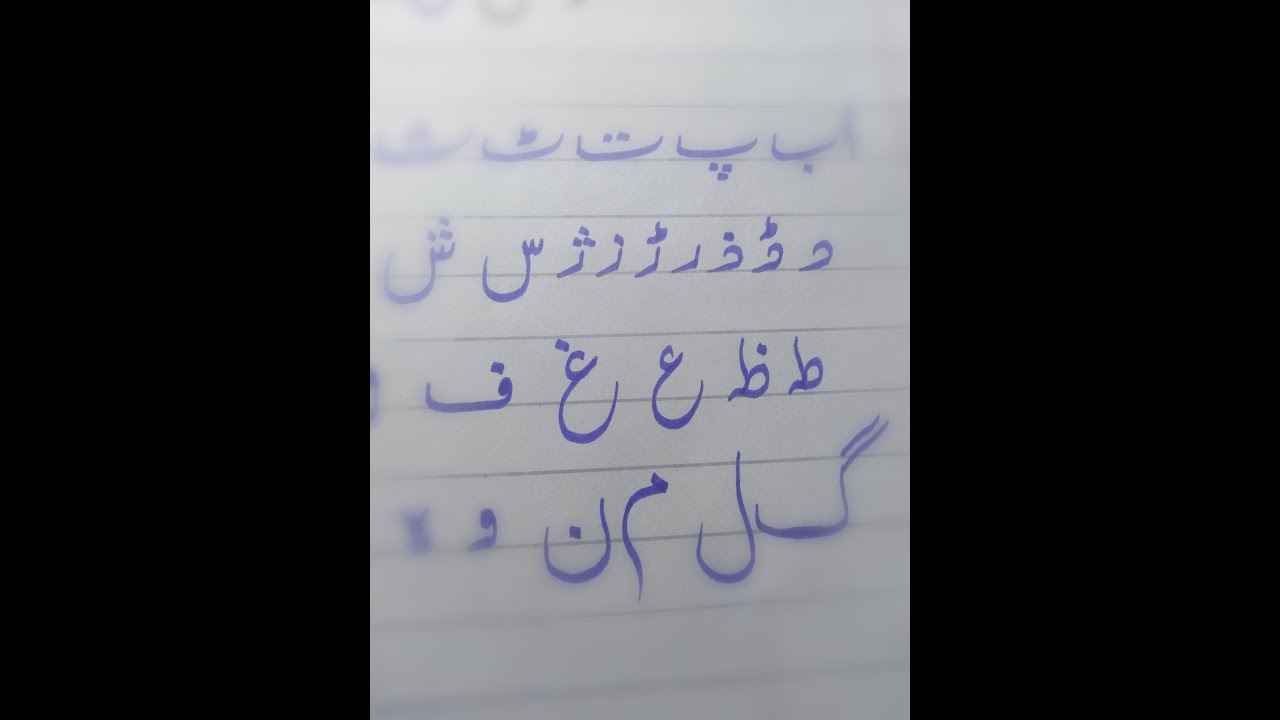 ا ب پ ت ٹ ث
د ڈ ذ ر ڑ ز ژ س ش
ط ظ ع غ ف
گ ل م ن و